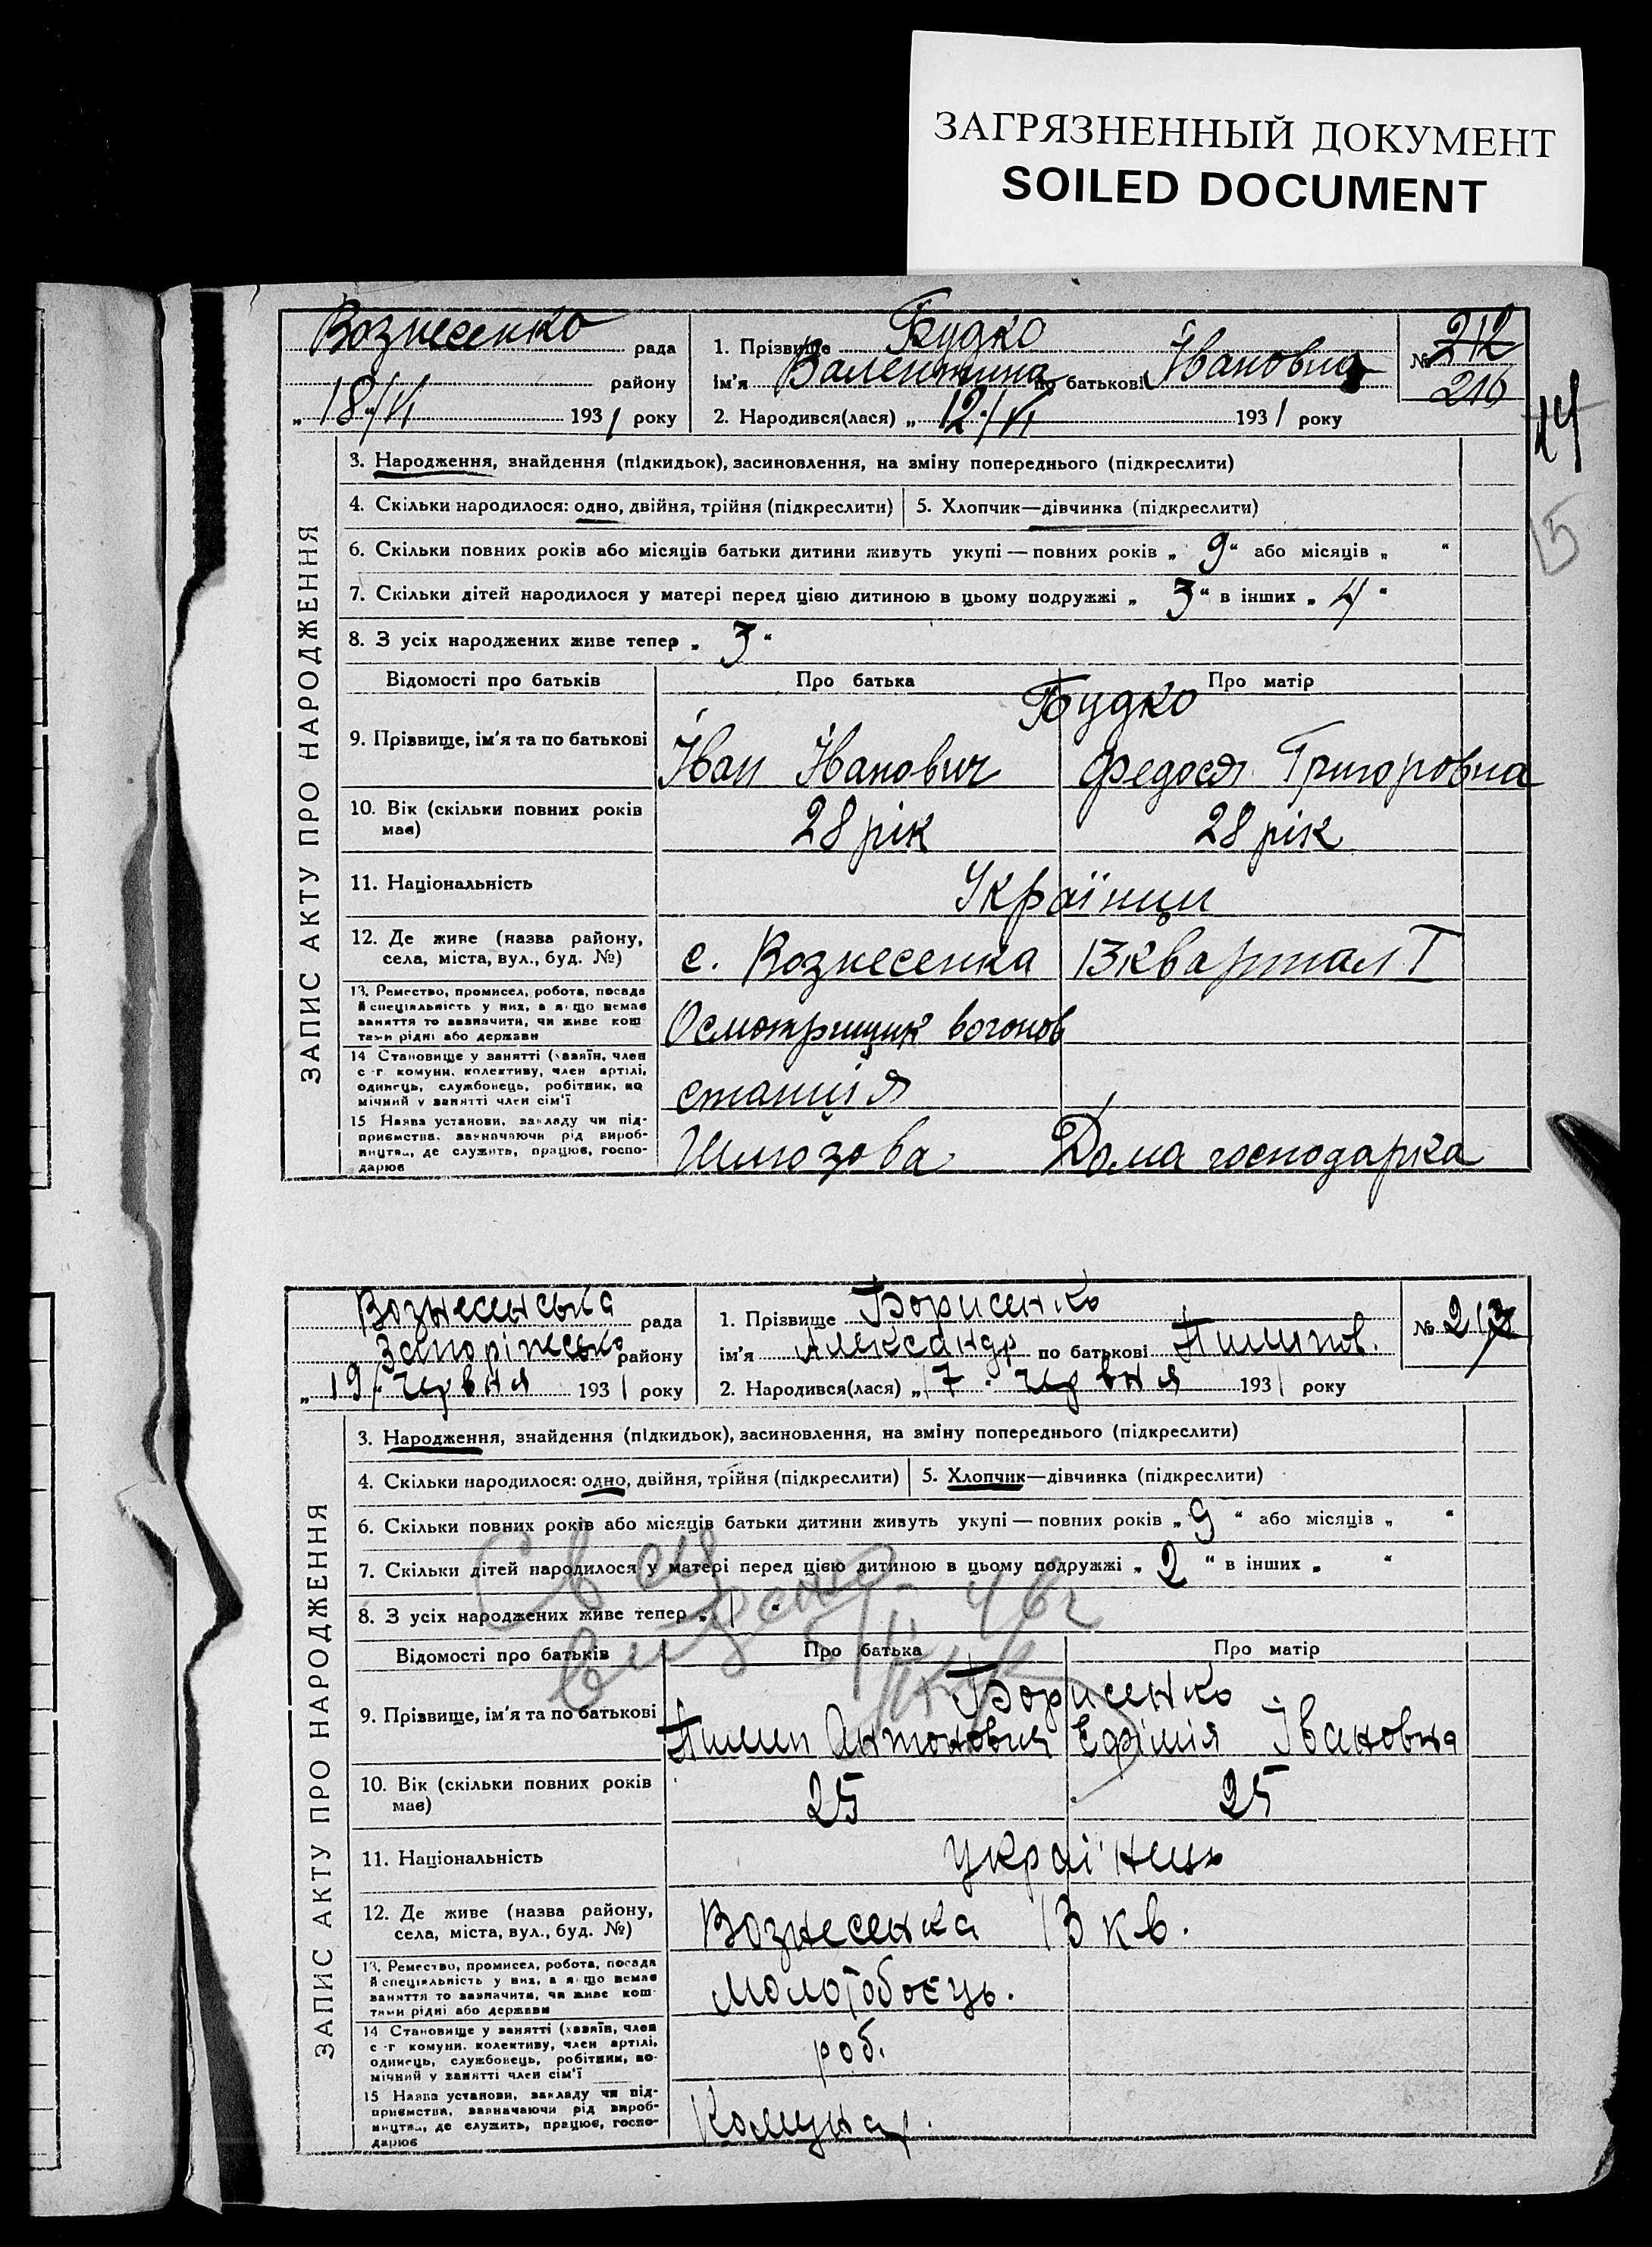 ЗАГРЯЗНЕННЫЙ ДОКУМЕНТ
SOILED DOCUMENT
Вознесенко рада
району
„ 18/VI 1931 року
1. Прізвище Будко
ім'я Валентина по батькові Івановна
2. Народився(лася) „ 12/VI 1931 року
№ 212
216
14
15
ЗАПИС АКТУ ПРО НАРОДЖЕННЯ
3. Народження, знайдення (підкидьок), засиновлення, на зміну попереднього (підкреслити)
4. Скільки народилося: одно, двійня, трійня (підкреслити) 5. Хлопчик—дівчинка (підкреслити)
6. Скільки повних років або місяців батьки дитини живуть укупі — повних років „ 9 “ або місяців „ “
7. Скільки дітей народилося у матері перед цією дитиною в цьому подружжі „ 3 “ в інших „ 4 “
8. З усіх народжених живе тепер „ 3 “
Відомості про батьків Про батька Про матір
Будко
9. Прізвище, ім'я та по батькові Іван Іванович Федося Григоровна
10. Вік (скільки повних років має) 28 рік 28 рік
11. Національність Українци
12. Де живе (назва району, села, міста, вул., буд. №) с. Вознесенка 13 квартал
13. Ремество, промисел, робота, посада й спеціяльність у них, а якщо немає заняття то зазначити, чи живе коштами рідні або держави Осмотрищик вогонов
14 Становище у занятті (хазяїн, член с-г комуни, колективу, член артілі, одинець, службовець, робітник, помічний у занятті член сім'ї станція
15 Назва установи, закладу чи підприємства, зазначаючи рід виробництва, де служить, працює, господарює Шлюзова Дома господарка
Вознесенська рада
Запоріжсько району
„ 19/червня 1931 року
1. Прізвище Борисенко
ім'я Александр по батькові Пилипов.
2. Народився(лася) „ 17. червня 1931 року
№ 217
ЗАПИС АКТУ ПРО НАРОДЖЕННЯ
3. Народження, знайдення (підкидьок), засиновлення, на зміну попереднього (підкреслити)
4. Скільки народилося: одно, двійня, трійня (підкреслити) 5. Хлопчик—дівчинка (підкреслити)
6. Скільки повних років або місяців батьки дитини живуть укупі — повних років „ 9 “ або місяців „ “
7. Скільки дітей народилося у матері перед цією дитиною в цьому подружжі „ 2 “ в інших „ “
8. З усіх народжених живе тепер „ 1 “
Відомості про батьків Про батька Про матір
Борисенко
9. Прізвище, ім'я та по батькові Пилип Антонович Єфімія Івановна
10. Вік (скільки повних років має) 25 25
11. Національність Українець
12. Де живе (назва району, села, міста, вул., буд. №) Вознесенка 13 кв.
13. Ремество, промисел, робота, посада й спеціяльність у них, а якщо немає заняття то зазначити, чи живе коштами рідні або держави Молотобоєць.
14 Становище у занятті (хазяїн, член с-г комуни, колективу, член артілі, одинець, службовець, робітник, помічний у занятті член сім'ї роб.
15 Назва установи, закладу чи підприємства, зазначаючи рід виробництва, де служить, працює, господарює Комунар.